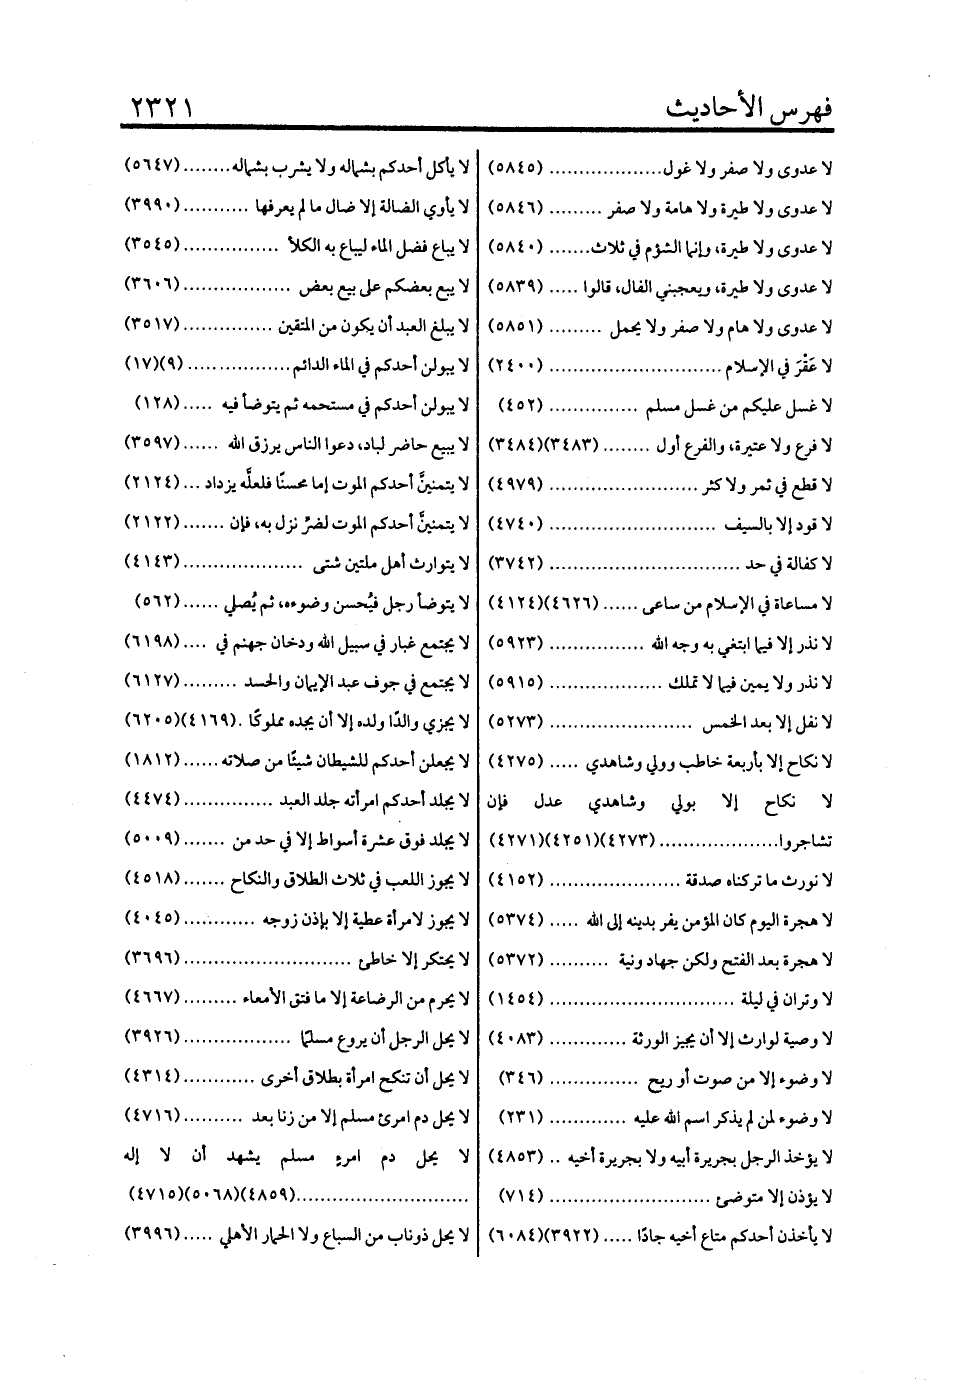 فهرس الأحاديث ٢٣٢١
لا عدوى ولا صفر ولا غول................... (٥٨٤٥)
لا عدوى ولا طيرة ولا هامة ولا صفر ......... (٥٨٤٦)
لا عدوى ولا طيرة، وإنما الشؤم في ثلاث....... (٥٨٤٠)
لا عدوى ولا طيرة، ويعجبني الفال، قالوا ..... (٥٨٣٩)
لا عدوى ولا هام ولا صفر ولا يحمل ......... (٥٨٥١)
لا عَقْرَ في الإسلام ............................. (٢٤٠٠)
لا غسل عليكم من غسل مسلم ............... (٤٥٢)
لا فرع ولا عتيرة، والفرع أول ........ (٣٤٨٣)(٣٤٨٤)
لا قطع في ثمر ولا كثر ......................... (٤٩٧٩)
لا قود إلا بالسيف ............................ (٤٧٤٠)
لا كفالة في حد ................................ (٣٧٤٢)
لا مساعاة في الإسلام من ساعى ...... (٤٦٢٦)(٤١٢٤)
لا نذر إلا فيما ابتغي به وجه الله ................ (٥٩٢٣)
لا نذر ولا يمين فيما لا تملك ................... (٥٩١٥)
لا نفل إلا بعد الخمس ........................ (٥٢٧٣)
لا نكاح إلا بأربعة خاطب وولي وشاهدي ..... (٤٢٧٥)
لا نكاح إلا بولي وشاهدي عدل فإن
تشاجروا.................... (٤٢٧٣)(٤٢٥١)(٤٢٧١)
لا نورث ما تركناه صدقة ...................... (٤١٥٢)
لا هجرة اليوم كان المؤمن يفر بدينه إلى الله ..... (٥٣٧٤)
لا هجرة بعد الفتح ولكن جهاد ونية .......... (٥٣٧٢)
لا وتران في ليلة ............................... (١٤٥٤)
لا وصية لوارث إلا أن يجيز الورثة ............. (٤٠٨٣)
لا وضوء إلا من صوت أو ريح ............... (٣٤٦)
لا وضوء لمن لم يذكر اسم الله عليه ............. (٢٣١)
لا يؤخذ الرجل بجريرة أبيه ولا بجريرة أخيه .. (٤٨٥٣)
لا يؤذن إلا متوضئ ........................... (٧١٤)
لا يأخذن أحدكم متاع أخيه جادًا ..... (٣٩٢٢)(٦٠٨٤)
لا يأكل أحدكم بشماله ولا يشرب بشماله........ (٥٦٤٧)
لا يأوي الضالة إلا ضال ما لم يعرفها ........... (٣٩٩٠)
لا يباع فضل الماء ليباع به الكلأ ................ (٣٥٤٥)
لا يبع بعضكم على بيع بعض .................. (٣٦٠٦)
لا يبلغ العبد أن يكون من المتقين ............... (٣٥١٧)
لا يبولن أحدكم في الماء الدائم................. (٩)(١٧)
لا يبولن أحدكم في مستحمه ثم يتوضأ فيه ..... (١٢٨)
لا يبيع حاضر لباد، دعوا الناس يرزق الله ...... (٣٥٩٧)
لا يتمنينَّ أحدكم الموت إما محسنًا فلعلَّه يزداد ... (٢١٢٤)
لا يتمنينَّ أحدكم الموت لضرٍّ نزل به، فإن ....... (٢١٢٢)
لا يتوارث أهل ملتين شتى .................... (٤١٤٣)
لا يتوضأ رجل فيُحسن وضوءه، ثم يُصلي ...... (٥٦٢)
لا يجتمع غبار في سبيل الله ودخان جهنم في .... (٦١٩٨)
لا يجتمع في جوف عبد الإيمان والحسد ......... (٦١٢٧)
لا يجزي والدًا ولده إلا أن يجده مملوكًا .(٤١٦٩)(٦٢٠٥)
لا يجعلن أحدكم للشيطان شيئًا من صلاته...... (١٨١٢)
لا يجلد أحدكم امرأته جلد العبد ............... (٤٤٧٤)
لا يجلد فوق عشرة أسواط إلا في حد من ....... (٥٠٠٩)
لا يجوز اللعب في ثلاث الطلاق والنكاح ....... (٤٥١٨)
لا يجوز لامرأة عطية إلا بإذن زوجه ............ (٤٠٤٥)
لا يحتكر إلا خاطئ ............................ (٣٦٩٦)
لا يحرم من الرضاعة إلا ما فتق الأمعاء ......... (٤٦٦٧)
لا يحل الرجل أن يروع مسلمًا .................. (٣٩٢٦)
لا يحل أن تنكح امرأة بطلاق أخرى ............ (٤٣١٤)
لا يحل دم امرئ مسلم إلا من زنا بعد .......... (٤٧١٦)
لا يحل دم امرءٍ مسلم يشهد أن لا إله
.............................(٤٨٥٩)(٥٠٦٨)(٤٧١٥)
لا يحل ذو ناب من السباع ولا الحمار الأهلي ..... (٣٩٩٦)